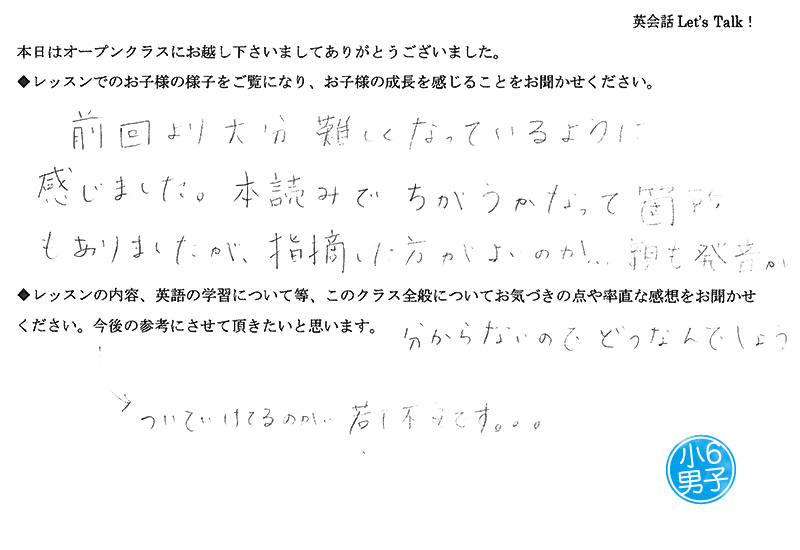 英会話 Let's Talk！
本日はオープンクラスにお越し下さいましてありがとうございました。
◆レッスンでのお子様の様子をご覧になり、お子様の成長を感じることをお聞かせください。
前回より大分 難しくなっているように
感じました。本読みで ちがうかなって箇所
もありましたが、指摘した方がよいのか... 親も発音が
◆レッスンの内容、英語の学習について等、このクラス全般についてお気づきの点や率直な感想をお聞かせ
ください。今後の参考にさせて頂きたいと思います。
分からないので どうなんでしょう
ついていけてるのかが 若干不安です。。。
小6
男子